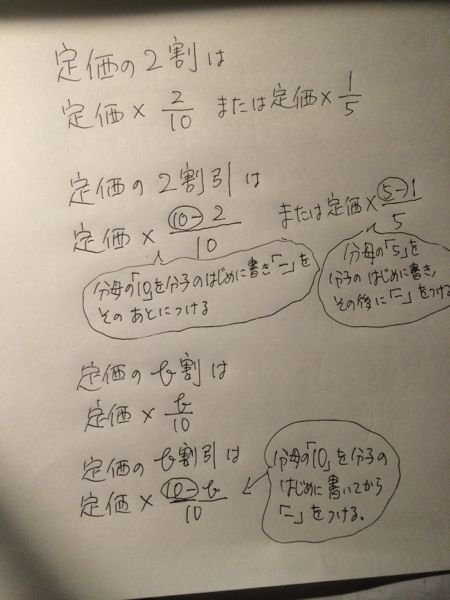 定価の2割は
定価 × 2/10 または定価 × 1/5
定価の2割引は
定価 × 10-2/10 または定価 × 5-1/5
分母の「10」を分子のはじめに書き「-」を
そのあとにつける
分母の「5」を
分子のはじめに書き、
その後に「-」をつける
定価のb割は
定価 × b/10
定価のb割引は
定価 × 10-b/10
分母の「10」を分子の
はじめに書いてから
「-」をつける.